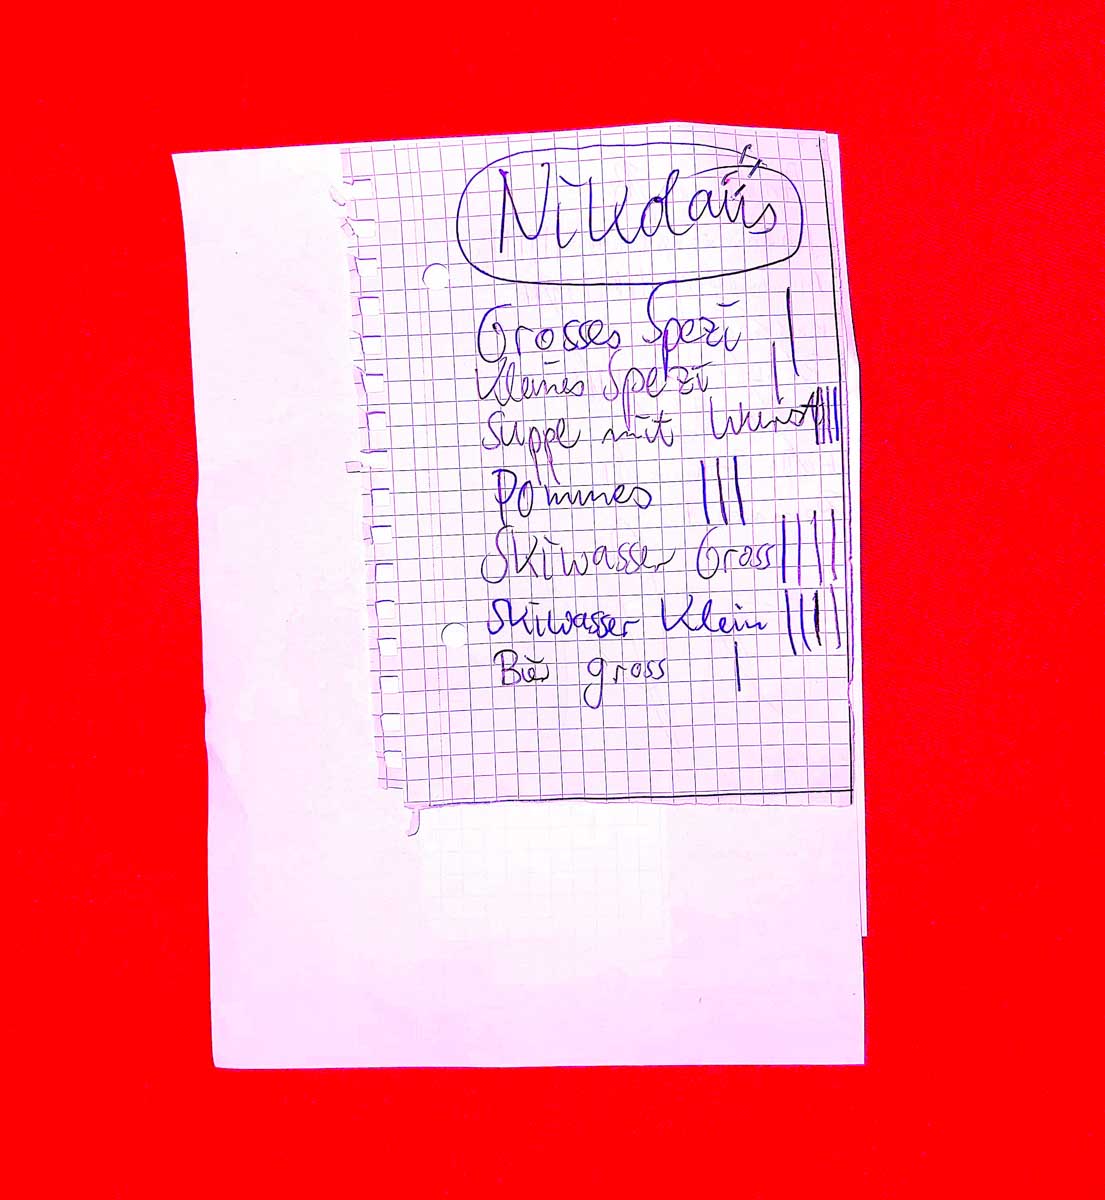 Nikolaus
Grosses Spezi |
Kleines Spezi |
Suppe mit Wurst |||
Pommes |||
Skiwasser Gross ||||
Skiwasser Klein ||||
Bier gross |